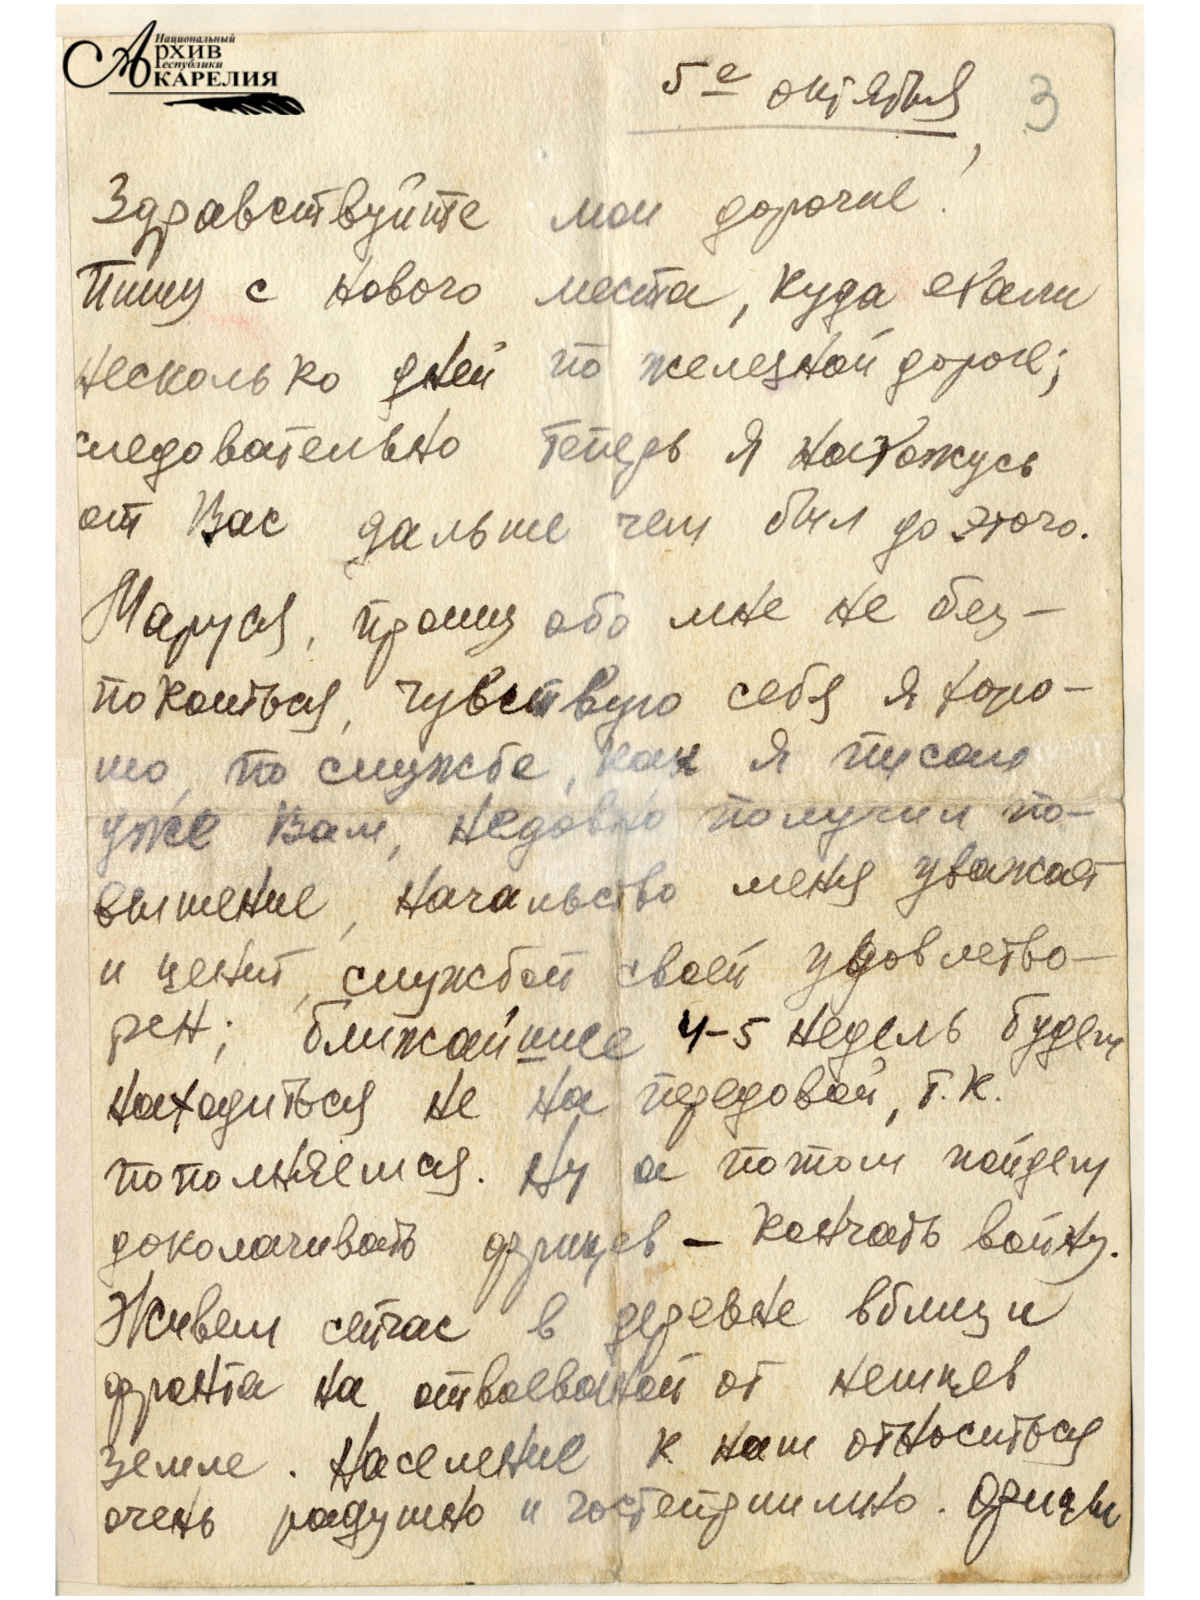 Национальный
Архив
Республики
Карелия
5е октября
3
Здравствуйте мои дорогие!
Пишу с нового места, куда ехали
несколько дней по железной дороге;
следовательно теперь я нахожусь
от Вас дальше чем был до этого.
Маруся, прошу обо мне не без-
покоиться, чувствую себя я хоро-
шо, по службе, как я писал
уже Вам, недавно получил по-
вышение, начальство меня уважает
и ценит, службой своей удовлетво-
рен; ближайшие 4-5 недель будем
находиться не на передовой, т.к.
пополняемся. Ну а потом пойдем
доколачивать фрицев – кончать войну.
Живем сейчас в деревне вблизи
фронта на отвоеванной от немцев
земле. Население к нам относиться
очень радушно и гостеприимно. Фрицы